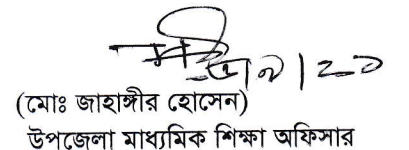 (মোঃ জাহাঙ্গীর হোসেন)
উপজেলা মাধ্যমিক শিক্ষা অফিসার